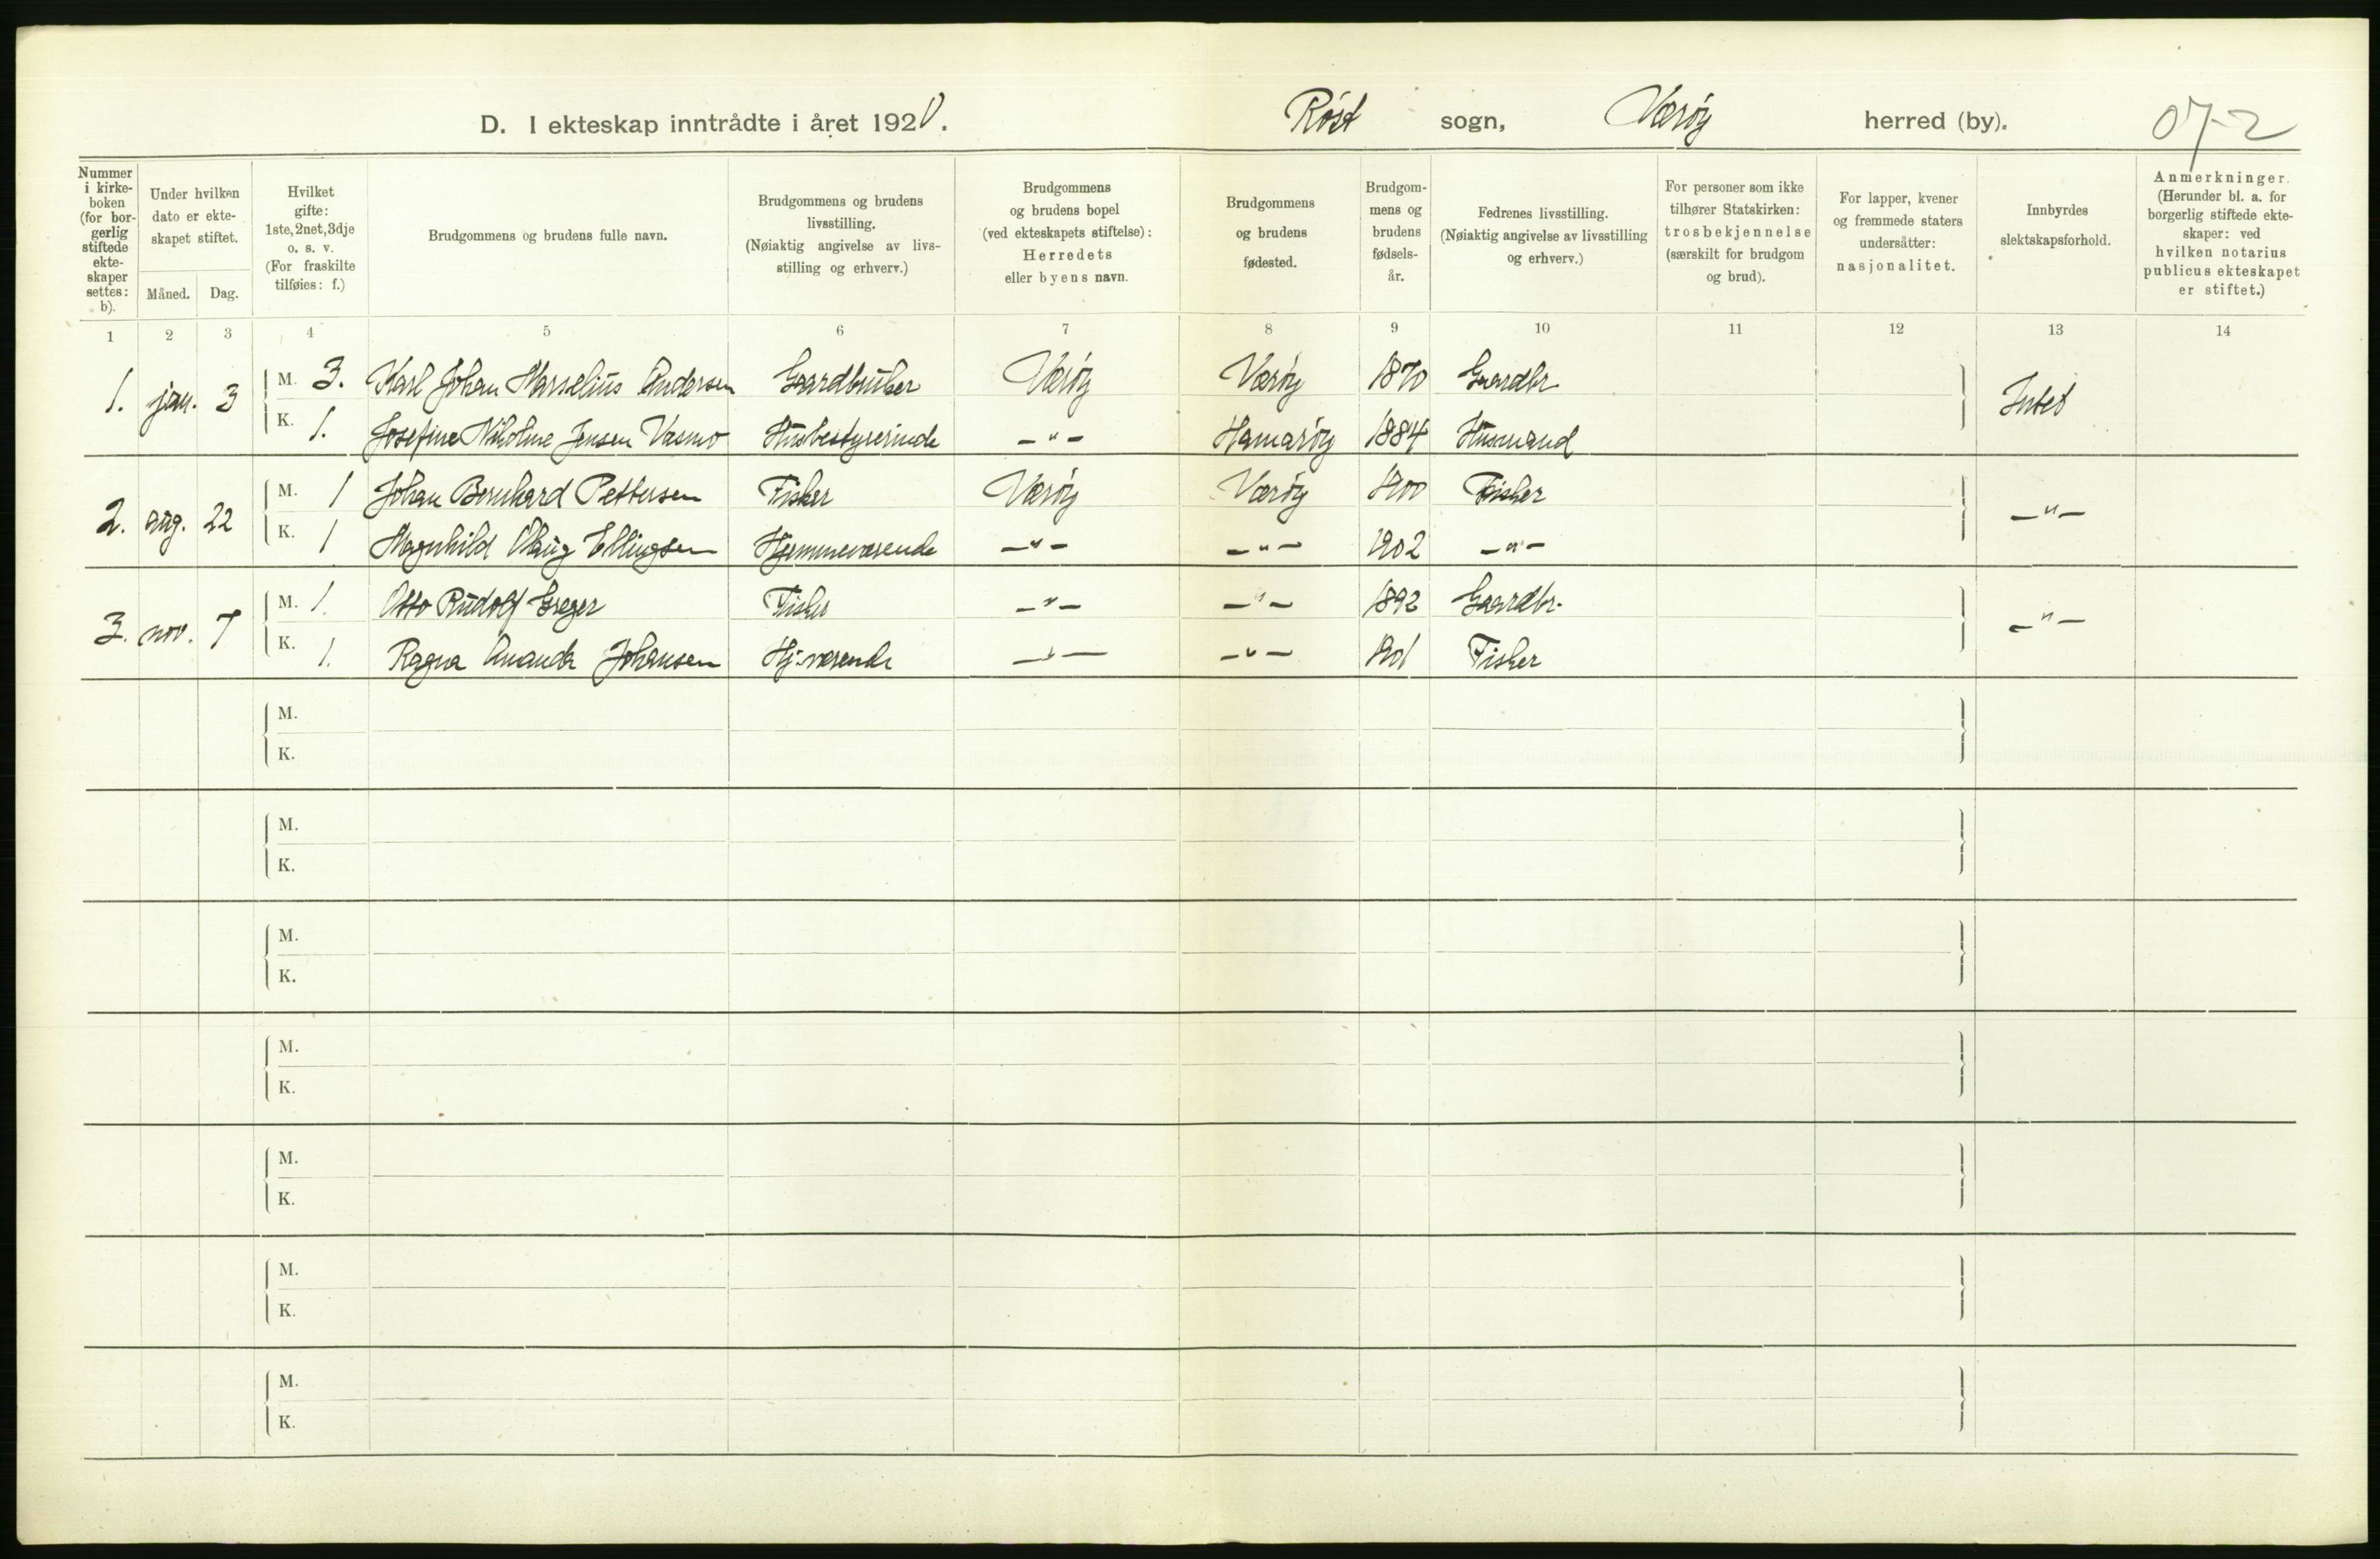 D. I ekteskap inntrådte i året 1920. Røst sogn, Værøy herred (by). 07-2
Nummer i kirke-boken (for bor-gerlig stiftede ekte-skaper settes: b).
Under hvilken dato er ekte-skapet stiftet.
Måned. Dag.
Hvilket gifte: 1ste, 2net, 3dje o. s. v. (For fraskilte tilføies: f.)
Brudgommens og brudens fulle navn.
Brudgommens og brudens livsstilling. (Nøiaktig angivelse av livs-stilling og erhverv.)
Brudgommens og brudens bopel (ved ekteskapets stiftelse): Herredets eller byens navn.
Brudgommens og brudens fødested.
Brudgom-mens og brudens fødsels-år.
Fedrenes livsstilling. (Nøiaktig angivelse av livsstilling og erhverv.)
For personer som ikke tilhører Statskirken: trosbekjennelse (særskilt for brudgom og brud).
For lapper, kvener og fremmede staters undersåtter: nasjonalitet.
Innbyrdes slektskapsforhold.
Anmerkninger. (Herunder bl. a. for borgerlig stiftede ekte-skaper: ved hvilken notarius publicus ekteskapet er stiftet.)
1 2 3 4 5 6 7 8 9 10 11 12 13 14
1. jan. 3 M. 3. Karl Johan Marselius Andersen Gaardbruker Værøy Værøy 1870 Gaardbr. Intet
K. 1. Josefine Nikoline Jensen Vasmo Husbestyrerinde -"- Hamarøy 1884 Husmand
2. aug. 22 M. 1 Johan Bernhard Pettersen Fisker Værøy Værøy 1900 Fisker -"-
K. 1 Magnhild Olaug Ellingsen Hjemmeværende -"- -"- 1902 -"-
3. nov. 7 M. 1. Otto Rudolf Greger Fisker -"- -"- 1892 Gaardbr. -"-
K. 1. Ragna Amanda Johansen Hj.værende -"- -"- 1901 Fisker
M.
K.
M.
K.
M.
K.
M.
K.
M.
K.
M.
K.
M.
K.